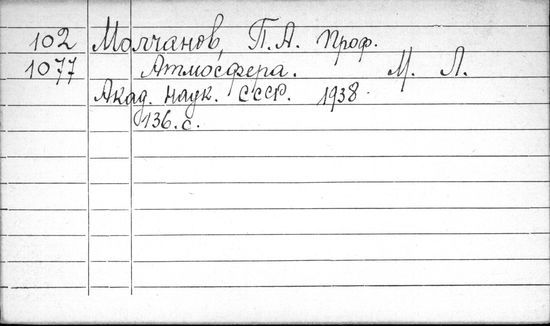 102 Молчанов, П.А. Проф.
1077 Атмосфера. М. Л.
Акад. наук. СССР. 1938.
136. с.